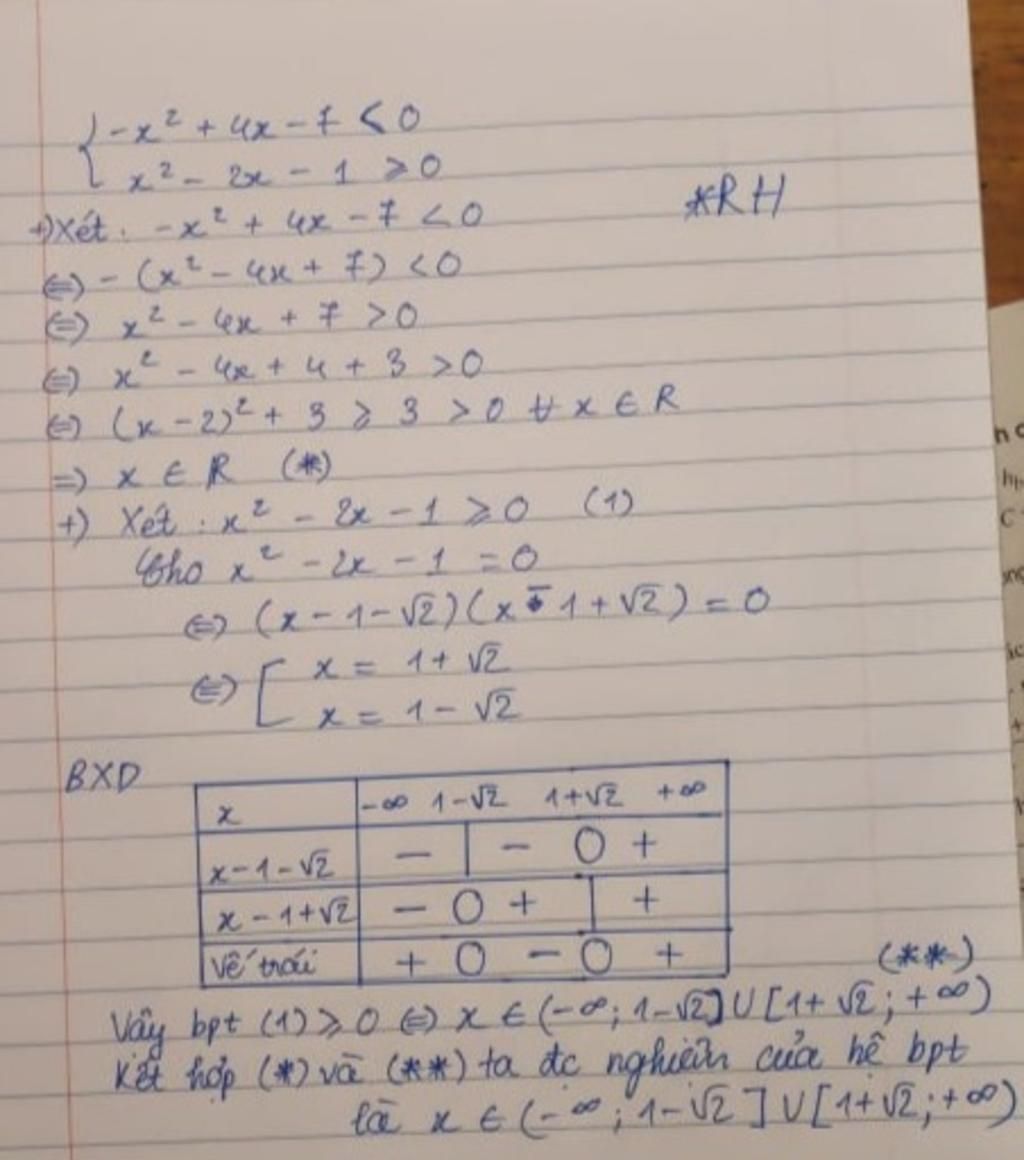 { -x² + 4x - 7 < 0
x² - 2x - 1 ⩾ 0
*RH
+) Xét: -x² + 4x - 7 < 0
⇔ -(x² - 4x + 7) < 0
⇔ x² - 4x + 7 > 0
⇔ x² - 4x + 4 + 3 > 0
⇔ (x - 2)² + 3 ⩾ 3 > 0 ∀ x ∈ R
⇒ x ∈ R (*)
+) Xét: x² - 2x - 1 ⩾ 0 (1)
Cho x² - 2x - 1 = 0
⇔ (x - 1 - √2)(x - 1 + √2) = 0
⇔ [ x = 1 + √2
x = 1 - √2
BXD
x | -∞ 1-√2 1+√2 +∞
x-1-√2 | - | - 0 +
x-1+√2 | - 0 + | +
Vế trái | + 0 - 0 +
(**)
Vây bpt (1) ⩾ 0 ⇔ x ∈ (-∞; 1-√2] ∪ [1+√2; +∞)
Kết hợp (*) và (**) ta đc nghiệm của hệ bpt
là x ∈ (-∞; 1-√2] ∪ [1+√2; +∞)